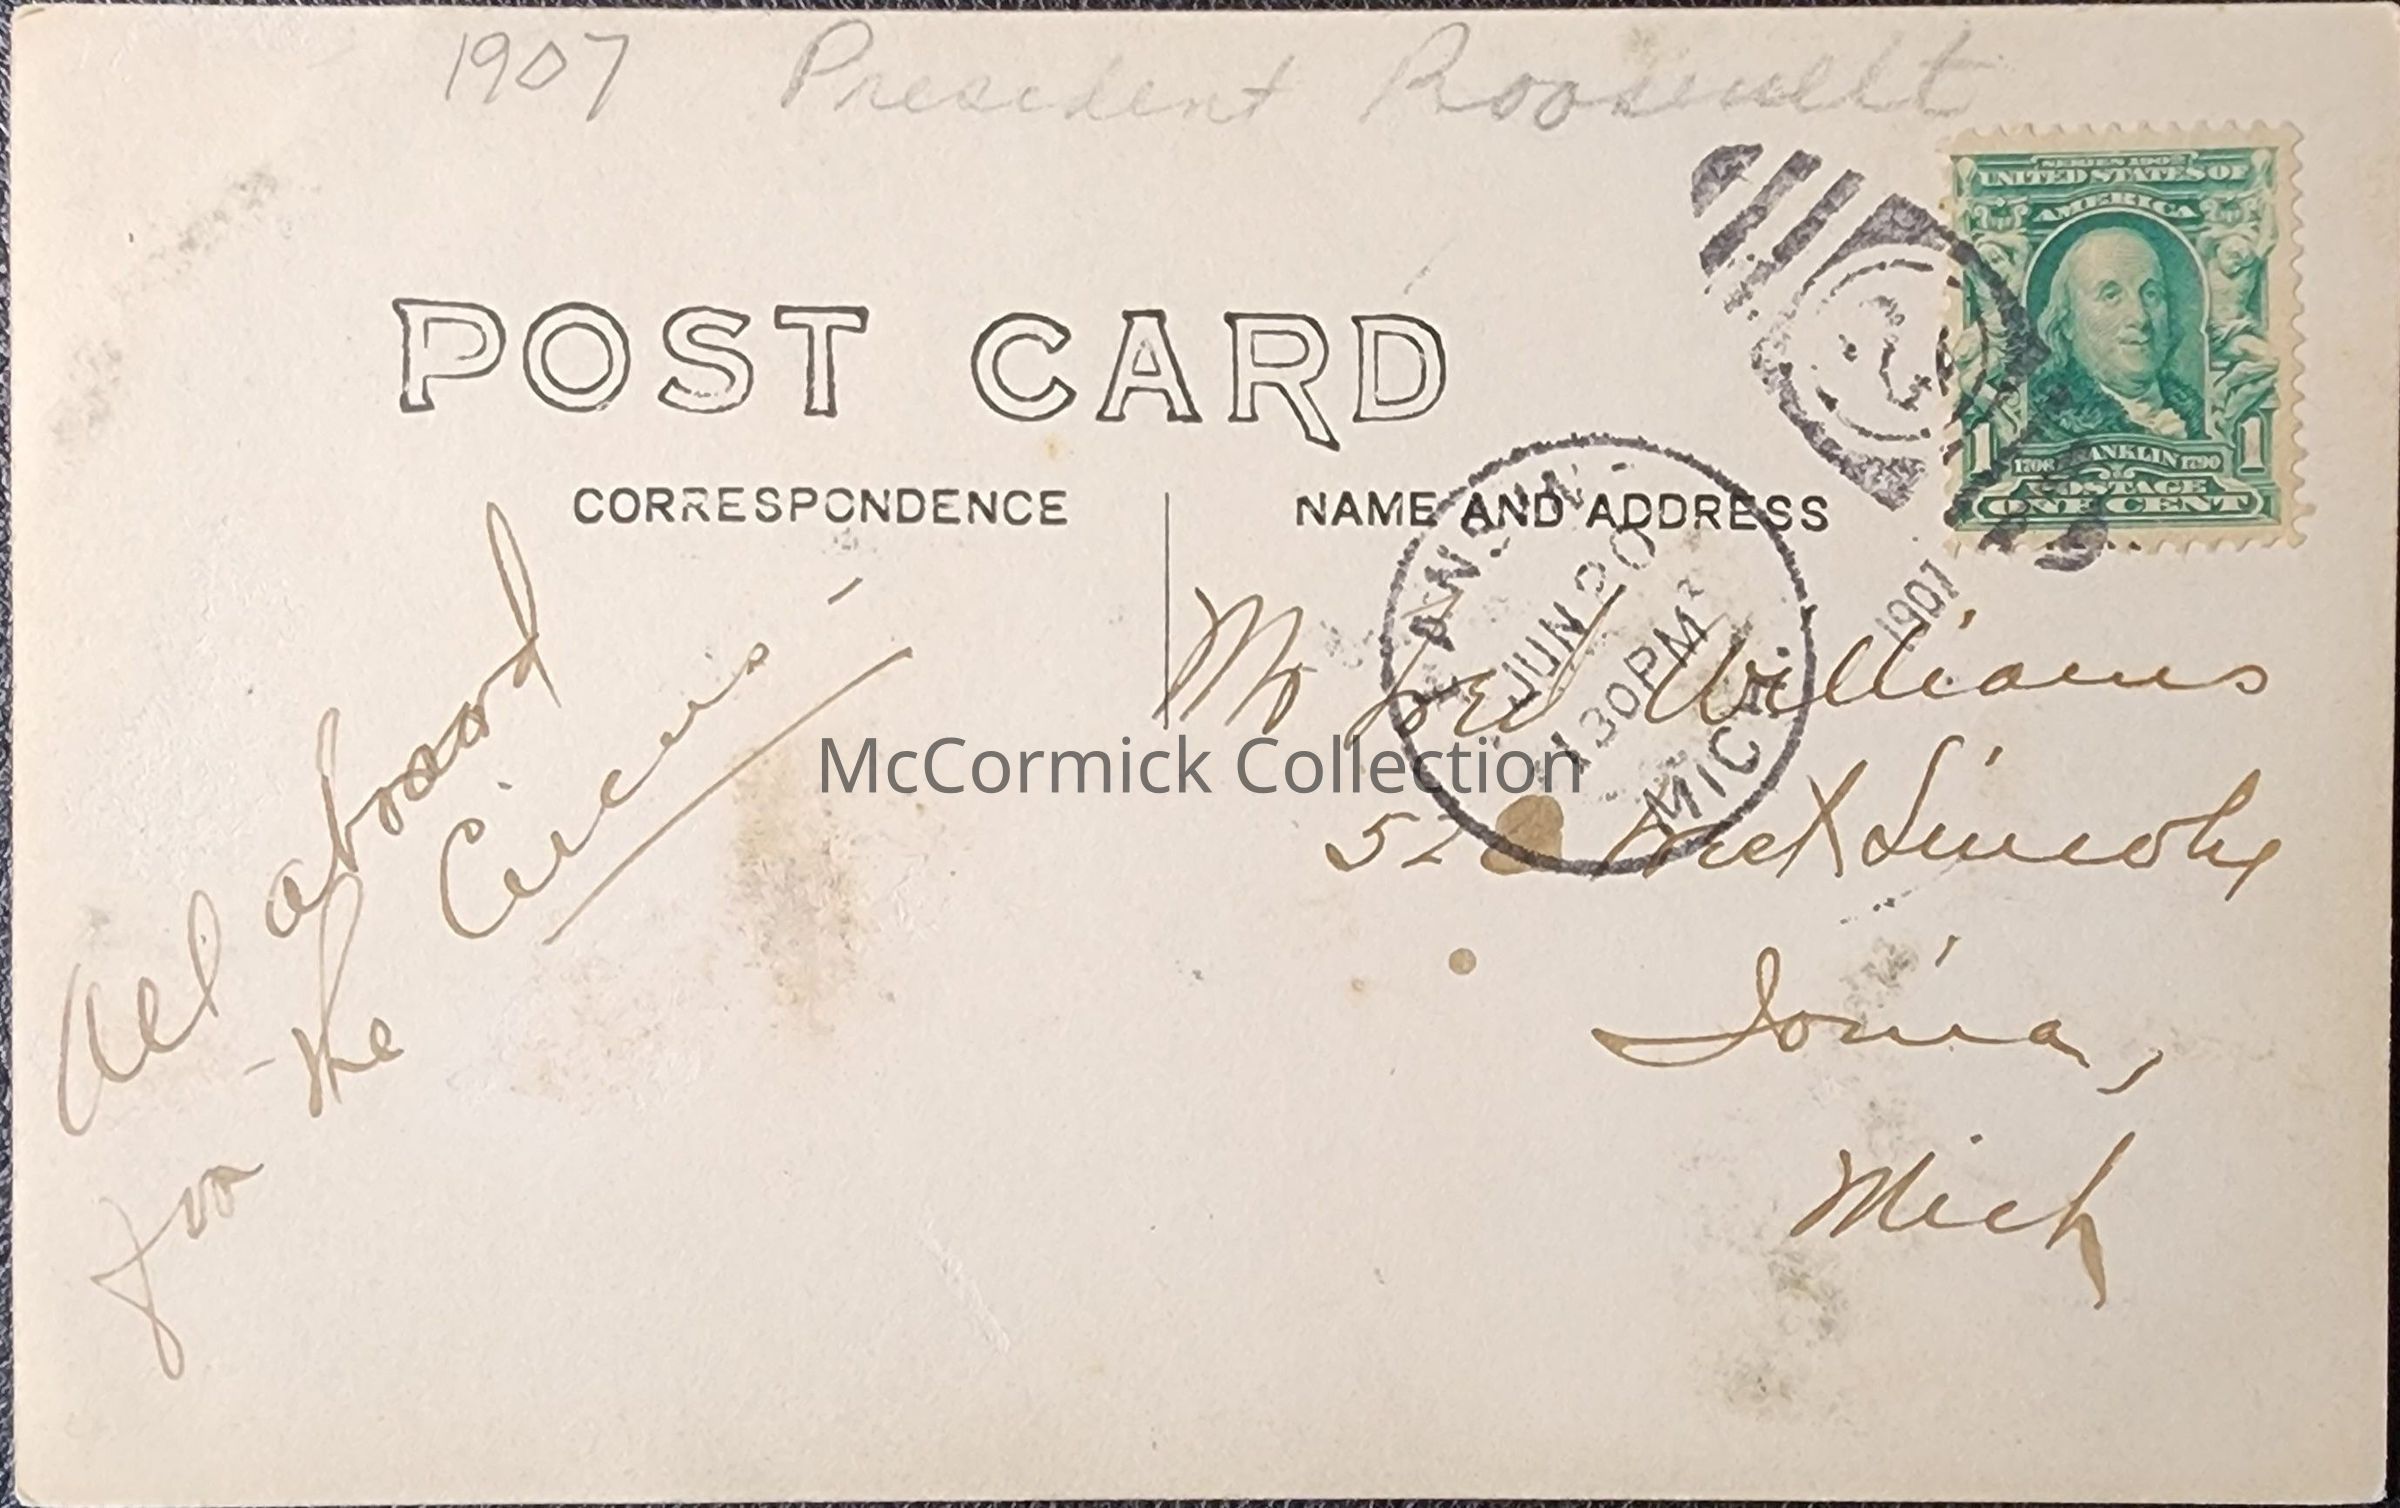 1907 President Roosevelt
SERIES 1902
UNITED STATES OF
AMERICA
1706 FRANKLIN 1790
1 1
POSTAGE
ONE CENT
POST CARD
CORRESPONDENCE
NAME AND ADDRESS
LANSING
JUN 20
1130PM
MICH.
1907
All aboard
for the
Circus
Mr Fred Williams
52 West Lincoln
Ionia,
Mich
McCormick Collection